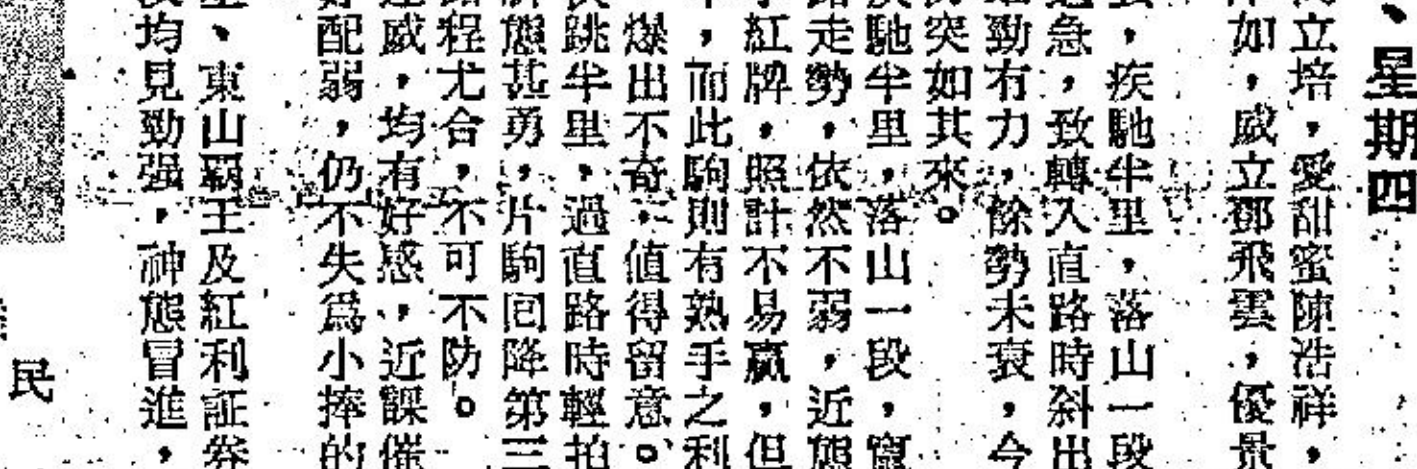 、星期四
立培，愛甜蜜陳浩祥，
如，威立鄧飛雲，優景
，疾馳半里，落山一段
急，致轉入直路時斜出
勁有力，餘勢未衰，今
突如其來。
馳半里，落山一段，竄
走勢，依然不弱，近態
紅牌，照計不易贏，但
，而此駒則有熟手之利
爆出不奇，值得留意。
跳半里，過直路時輕拍
態甚勇，片駒回降第三
程尤合，不可不防。
威，均有好感，近課催
配弱，仍不失爲小捧的
、東山霸王及紅利証券
均見勁强，神態冒進，
民